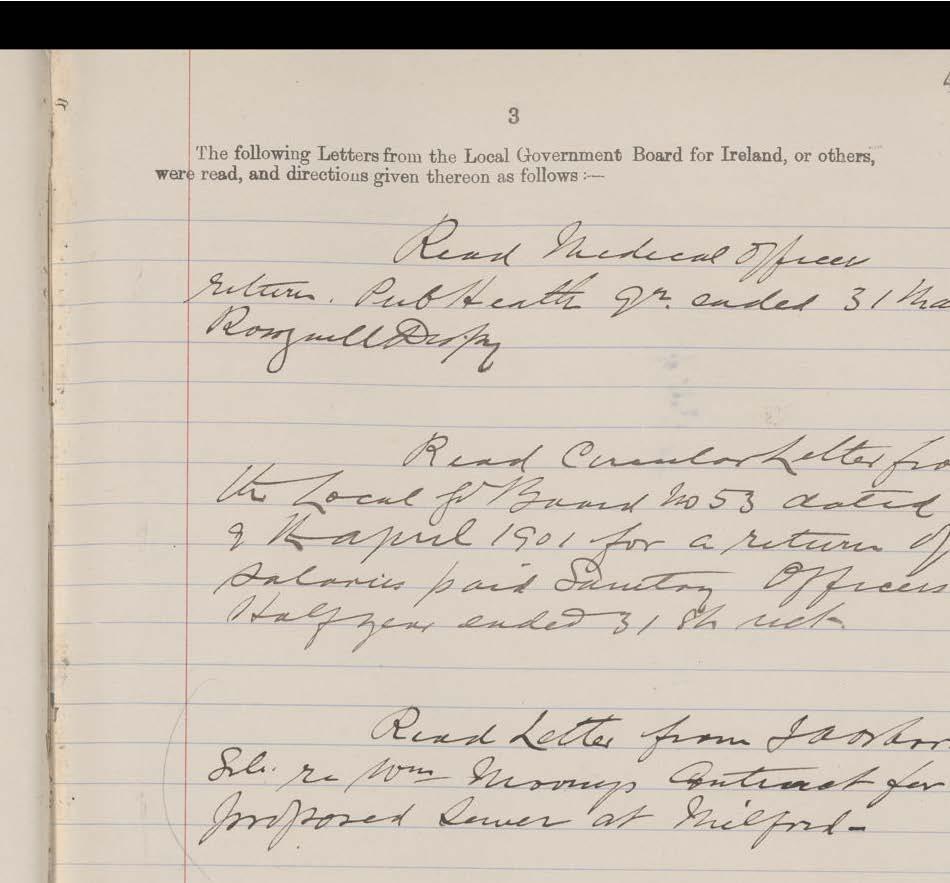 3
The following Letters from the Local Government Board for Ireland, or others,
were read, and directions given thereon as follows :—
Read Medical Officer
return. Pub Heath qr. ended 31 Ma
Rosguill Dispy
Read Circular Letter fro
the Local Gt Board No 53 dated
9th April 1901 for a return of
Salaries paid Sanitary Officers
Half year ended 31st
Read Letter from
Solr. re Wm Contract for
proposed Sewer at Milford-